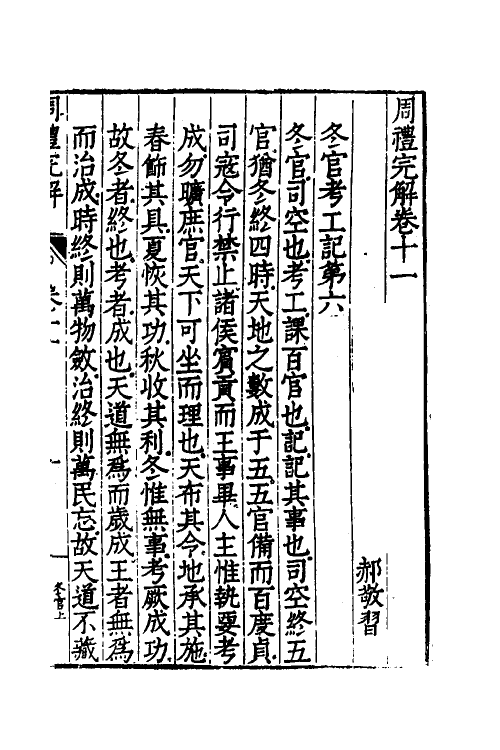 周禮完解卷十一
郝敬習
冬官考工記第六
冬官司空也考工課百官也記記其事也司空終五
官猶冬終四時天地之數成于五五官備而百度貞
司寇令行禁止諸侯賓貢而王事畢人主惟執要考
成勿曠庶官天下可坐而理也天布其令地承其施
春飭其具夏恢其功秋收其利冬惟無事考厥成功
故冬者終也考者成也天道無爲而歲成王者無爲
而治成時終則萬物斂治終則萬民忘故天道不藏
周禮完解
卷十一
一
冬官上